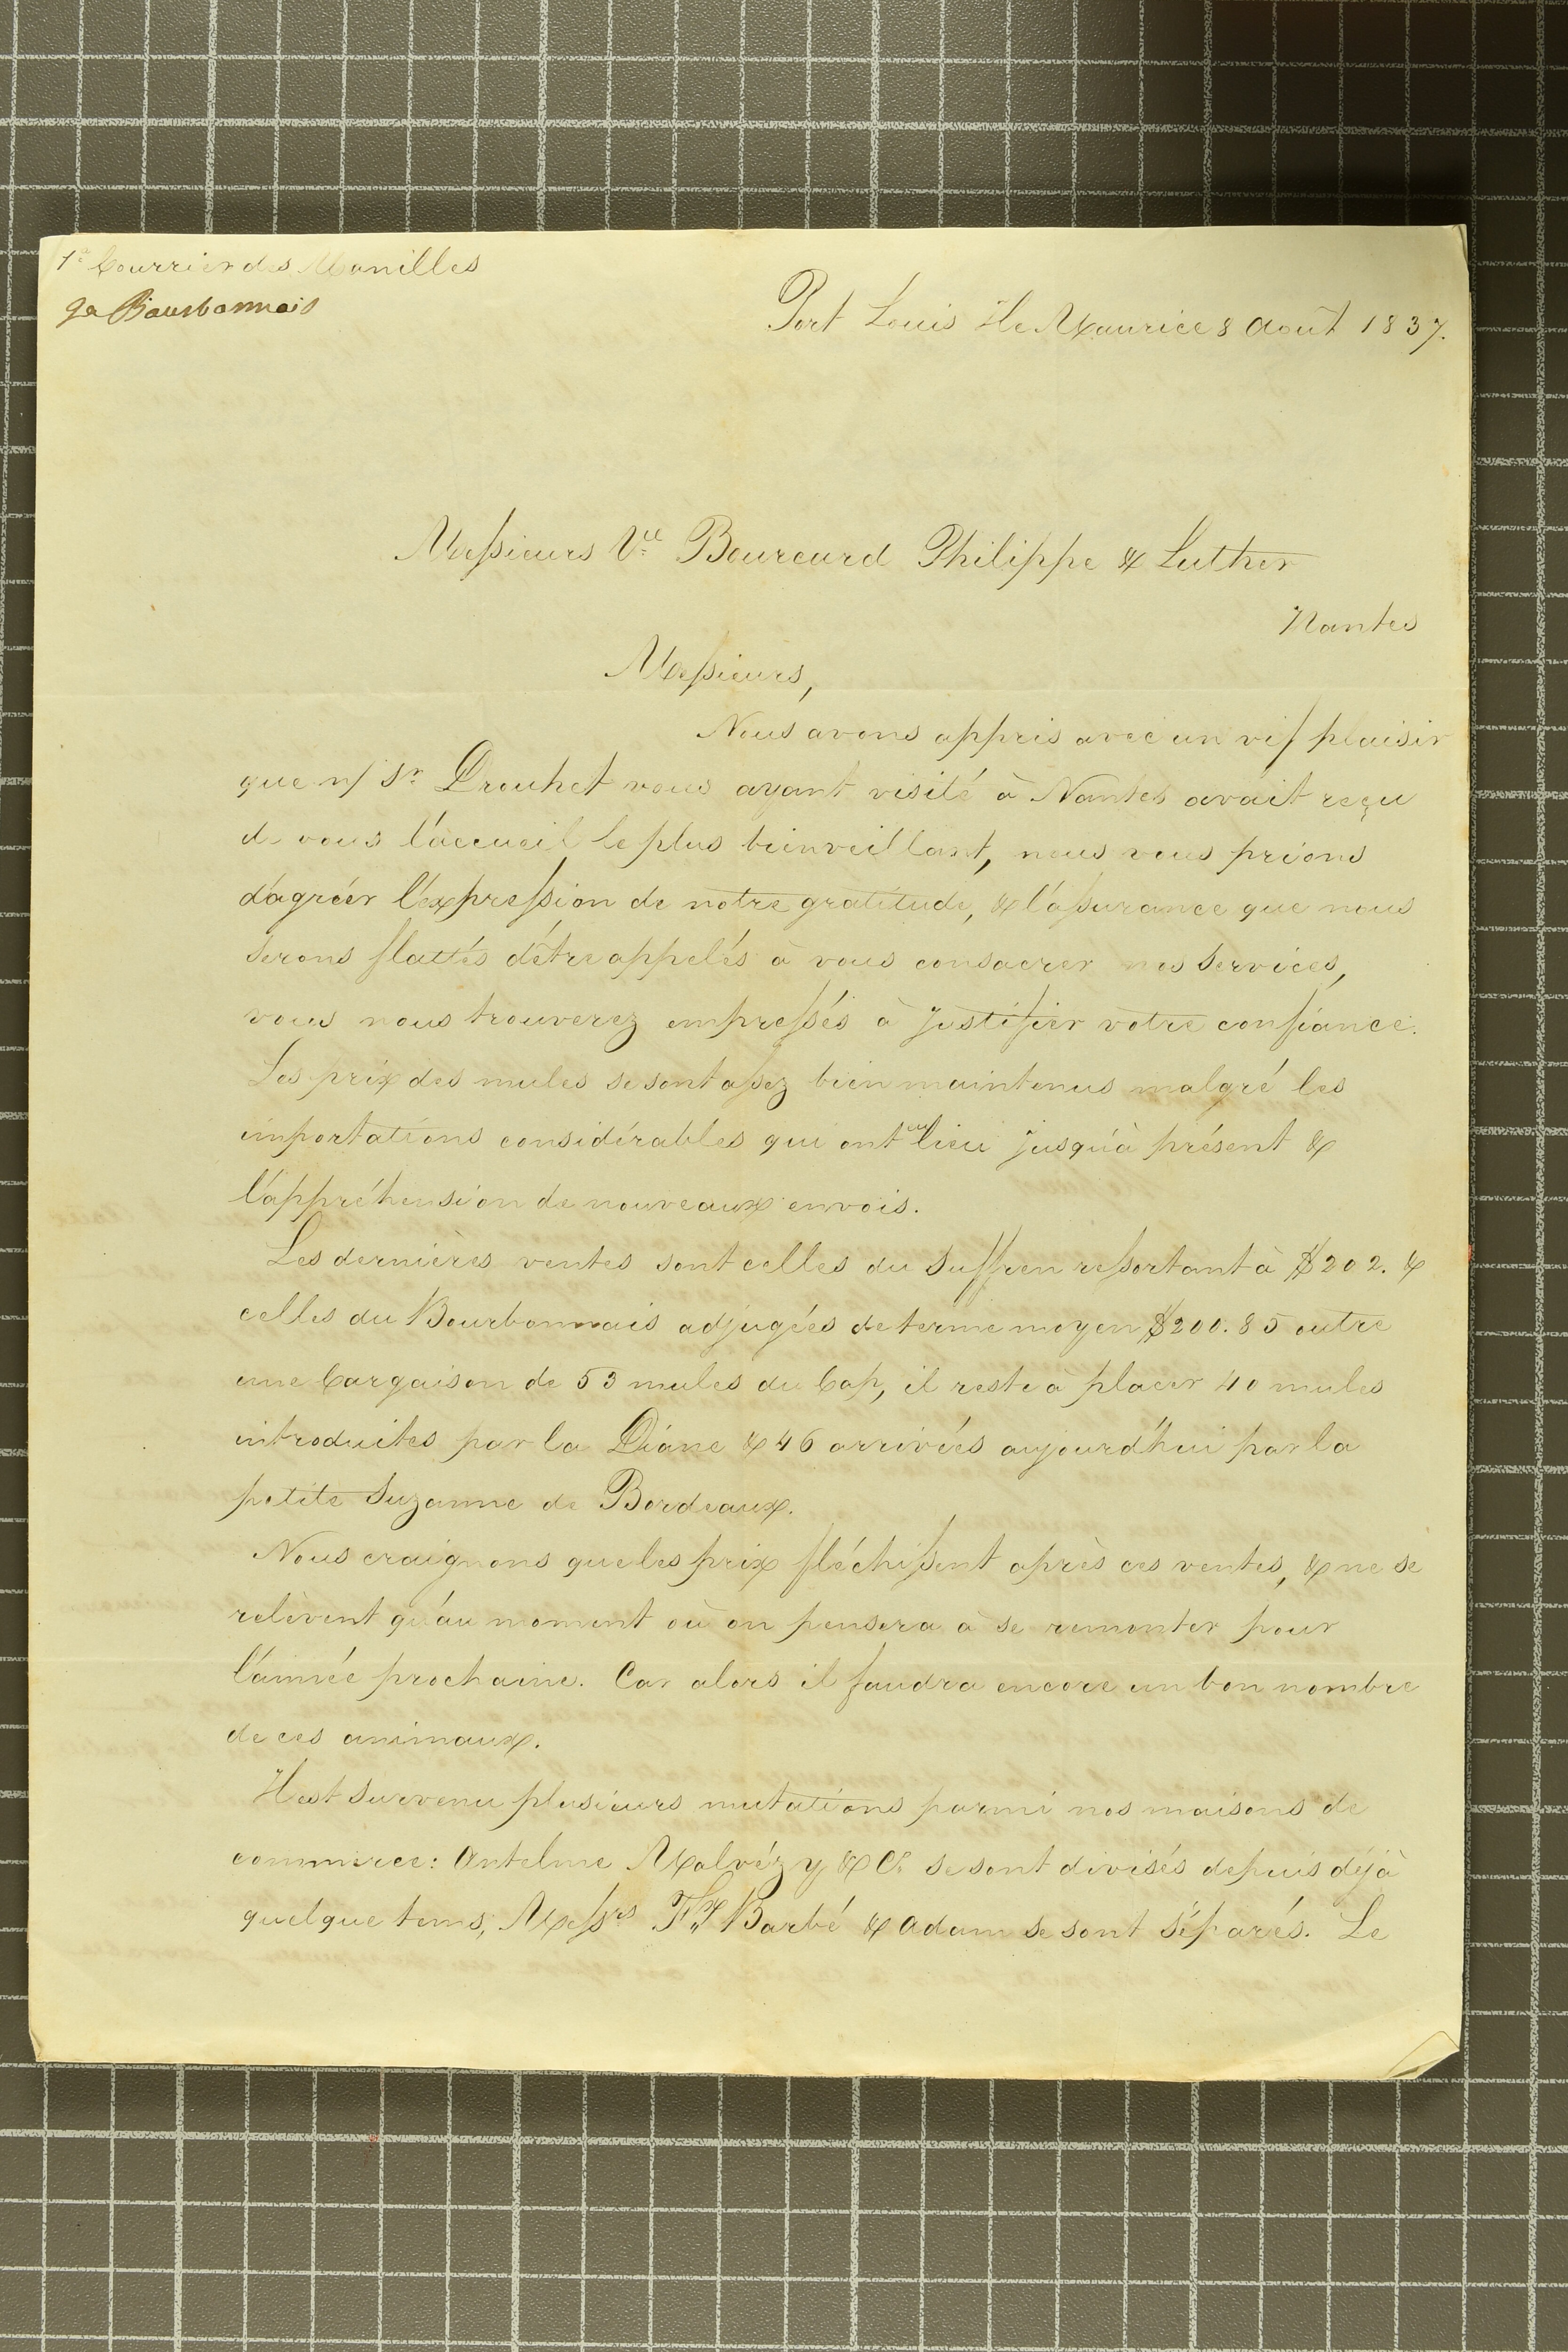 1a Courrier des Manilles
2a Bourbonnais
Port Louis île Maurice 8 août 1837.
Messieurs Vve Bourcard Philippe & Luther
Nantes
Messieurs,
Nous avons appris avec un vif plaisir
que n/ Sr. Drouhet vous ayant visité à Nantes avait reçu
de vous l'accueil le plus bienveillant, nous vous prions
d'agréer l'expression de notre gratitude, & l'assurance que nous
serons flattés d'être appelés à vous consacrer nos services,
vous nous trouverez empressés à justifier votre confiance.
Les prix des mules se sont assez bien maintenus malgré les
importations considérables qui ont eu lieu jusqu'à présent &
l'appréhension de nouveaux envois.
Les dernières ventes sont celles du Suffren ressortant à $202. &
celles du Bourbonnais adjugées de terme moyen $200.85 outre
une Cargaison de 53 mules du Cap, il reste à placer 40 mules
introduites par la Diane & 46 arrivées aujourd'hui par la
petite Suzanne de Bordeaux.
Nous craignons que les prix fléchissent après ces ventes, & ne se
relèvent qu'au moment où on pensera à se remonter pour
l'année prochaine. Car alors il faudra encore un bon nombre
de ces animaux.
Il est survenu plusieurs mutations parmi nos maisons de
commerce: Antelme Malvézy & Ce. se sont divisés depuis déjà
quelque tems, Messrs Barbé & Adam se sont séparés. Le